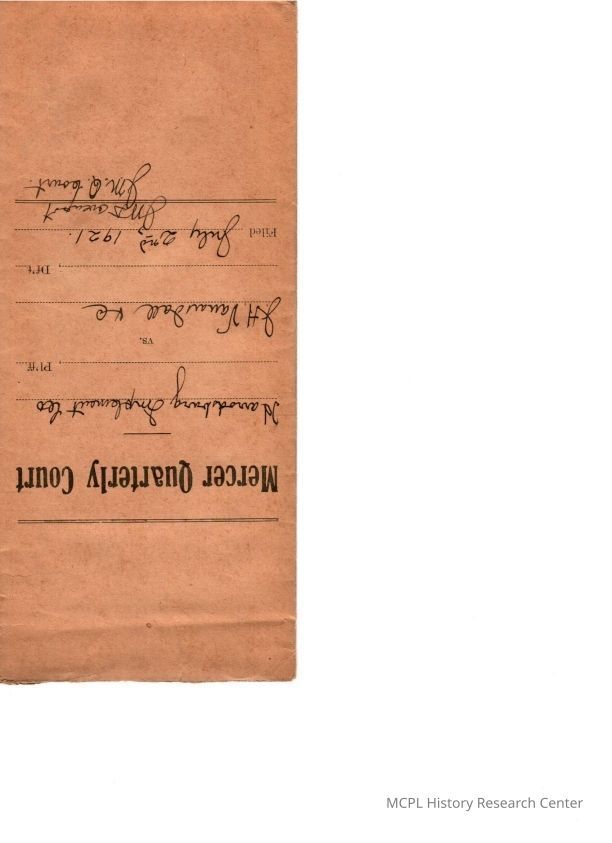 Mercer Quarterly Court
Harrodsburg Implement Co
, Pl'ff
vs.
J H Vanarsdall &c
, Df't.
Filed July 2nd 1921.
J.M.Q. Court.
MCPL History Research Center